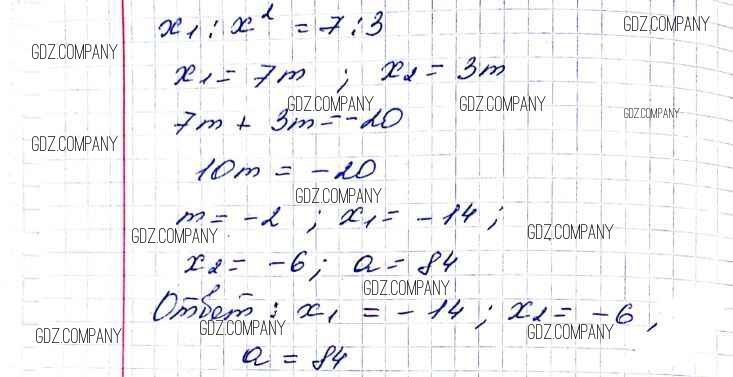 x₁ : x² = 7 : 3
GDZ.COMPANY GDZ.COMPANY
x₁ = 7m ; x₂ = 3m
GDZ.COMPANY GDZ.COMPANY GDZ.COMPANY
7m + 3m = -20
GDZ.COMPANY
10m = -20
GDZ.COMPANY
m = -2 ; x₁ = -14 ;
GDZ.COMPANY GDZ.COMPANY
x₂ = -6 ; a = 84
GDZ.COMPANY
Ответ : x₁ = -14 ; x₂ = -6 ,
GDZ.COMPANY GDZ.COMPANY GDZ.COMPANY
a = 84